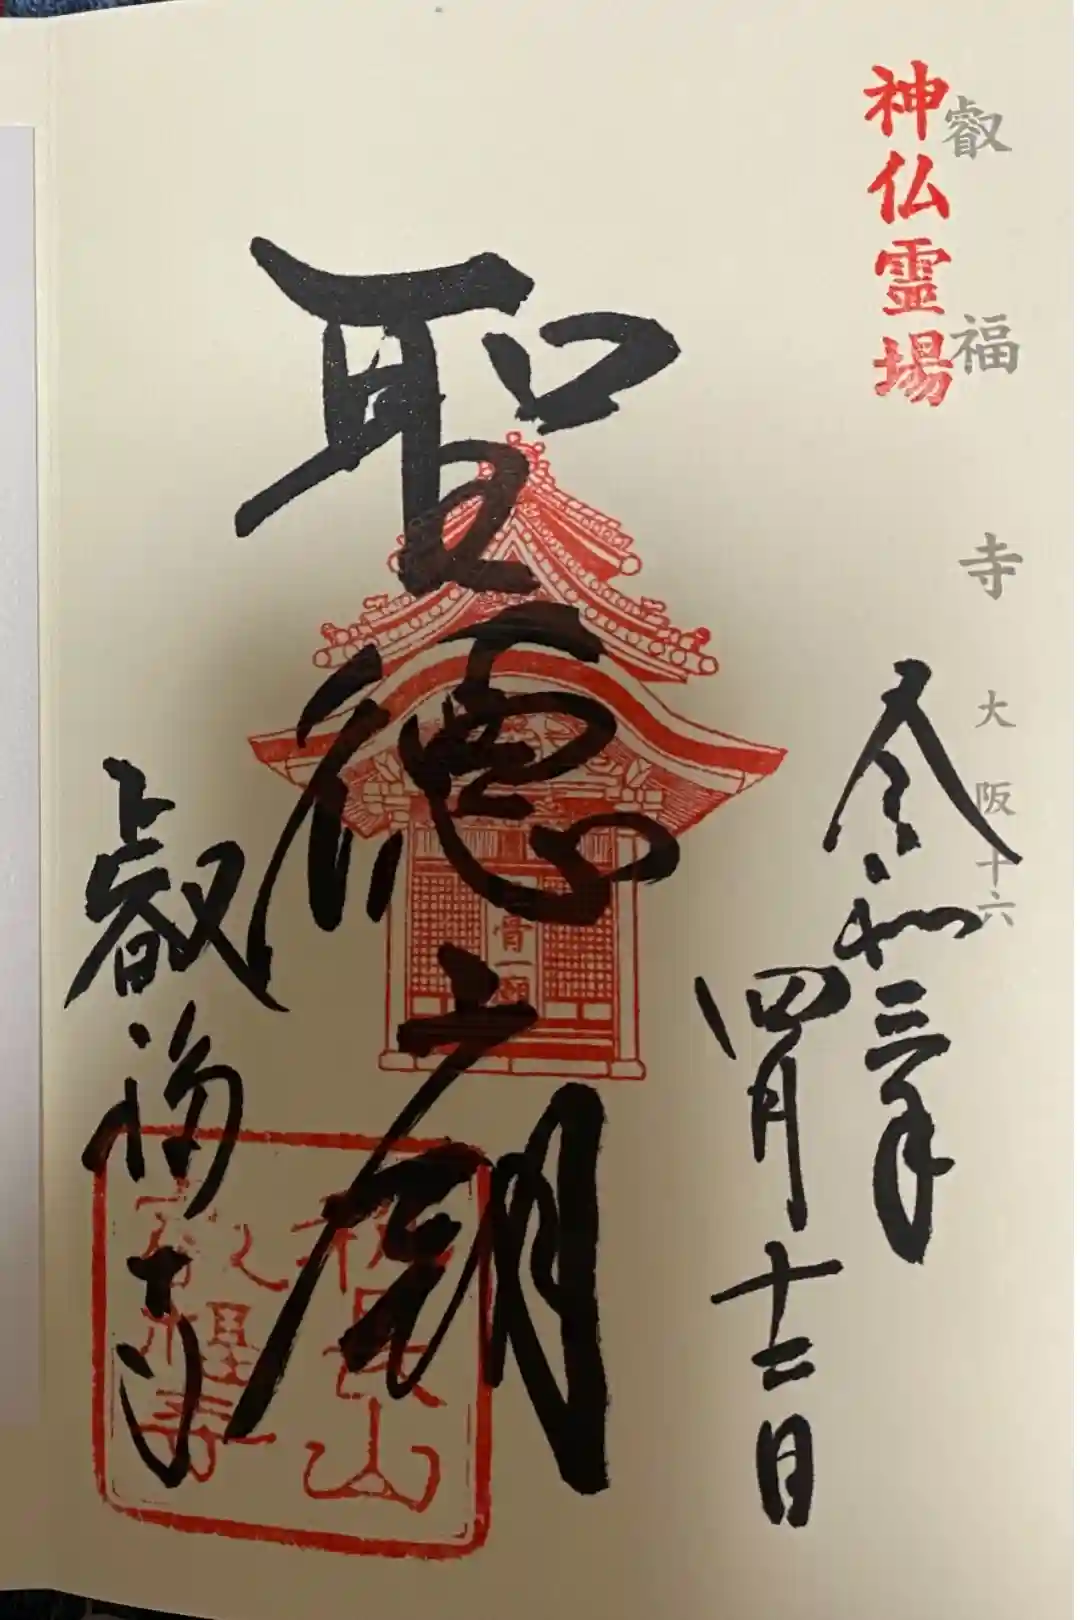 叡福寺 大阪十六
神仏霊場
令和三年
四月十二日
聖徳廟
骨一廟
叡福寺
磯長山
叡福寺